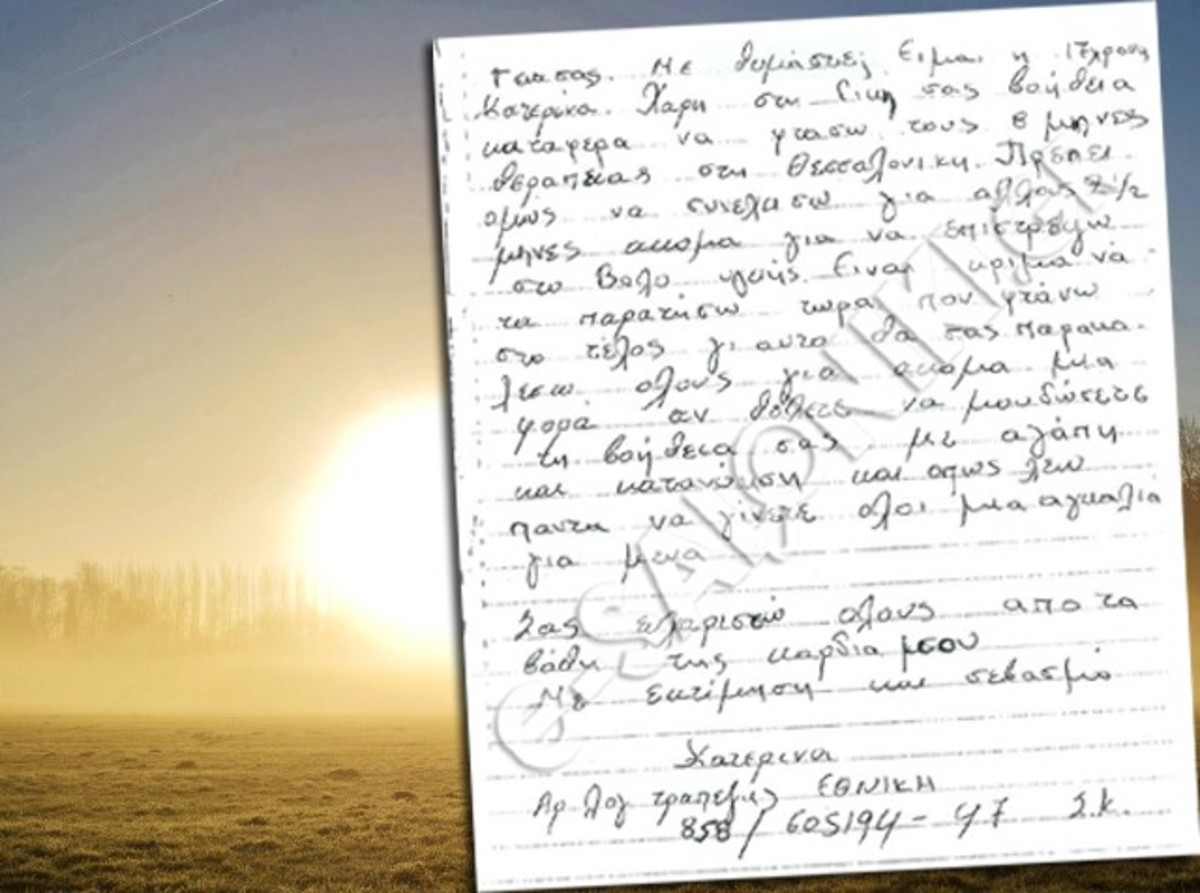 Γεια σας. Με θυμάστε; Ειμαι η 17χρονη
Κατερίνα. Χαρη στη δικη σας βοήθεια
καταφερα να φτασω τους 8 μηνες
θεραπειας στη Θεσσαλονικη. Πρέπει
ομως να συνεχισω για αλλους 2 1/2
μηνες ακομα για να επιστρεψω
στο Βολο υγιής. Ειναι κριμα να
τα παρατήσω τωρα που φτάνω
στο τέλος γι αυτο θα σας παρακα-
λεσω ολους για ακομα μια
φορά αν θέλετε να μου δώσετε
τη βοήθεια σας με αγάπη
και κατανόηση και οπως λεω
παντα να γίνετε ολοι μια αγκαλιά
για μενα
Σας ευχαριστώ ολους απο τα
βάθη της καρδια μσου
Με εκτίμηση και σεβασμό
Κατερινα
Αρ. λογ τραπεζης ΕΘΝΙΚΗ
858 / 605194 - 47 Σ.Κ.